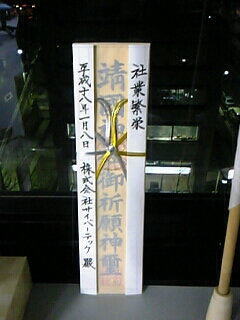 社業繁栄
靖國神社御祈願神璽
平成十八年一月八日　株式会社サイバーテック殿